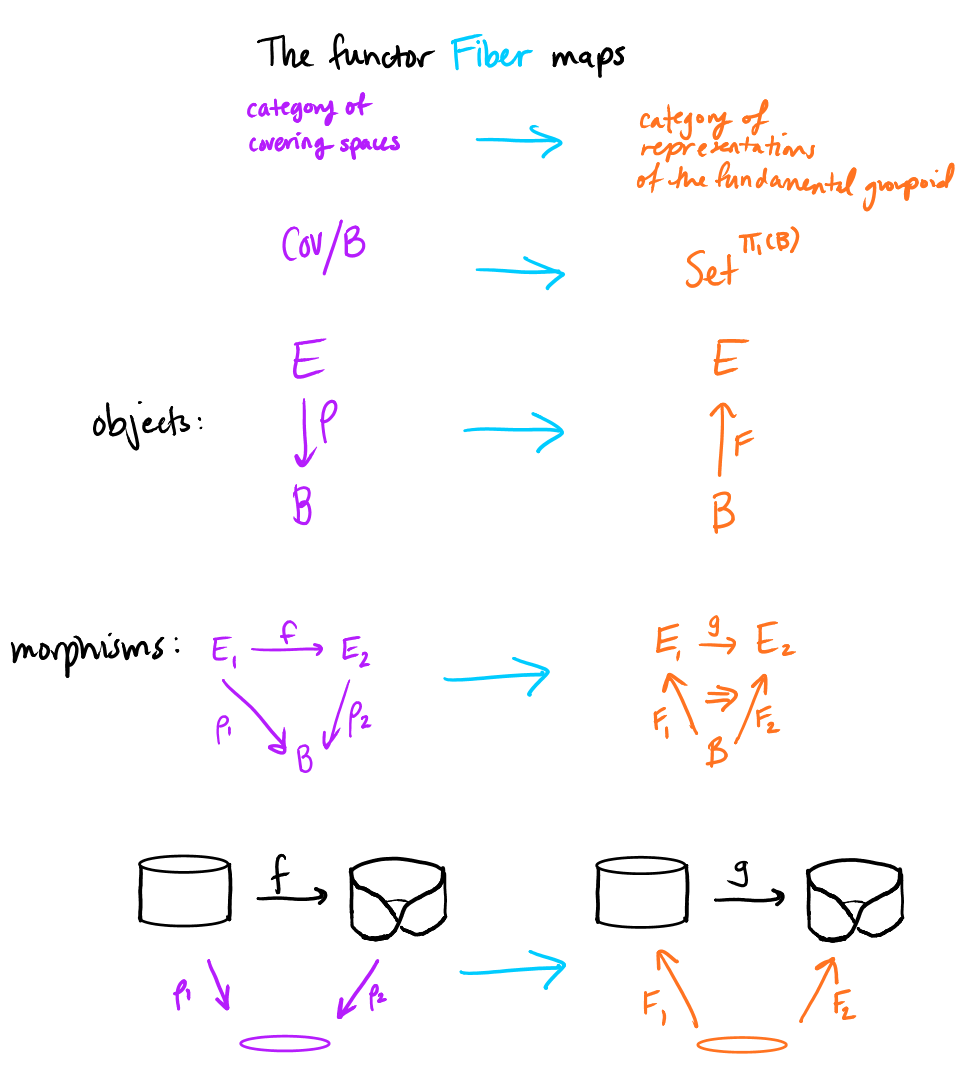 The functor Fiber maps
category of
covering spaces
category of
representations
of the fundamental groupoid
Cov/B
Set^π₁(B)
E
E
objects:
p
F
B
B
morphisms:
E₁ f E₂
E₁ g E₂
p₁ p₂
F₁ ⇒ F₂
B
B
f
g
p₁ p₂
F₁ F₂